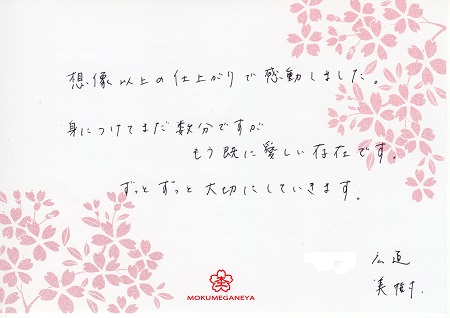 想像以上の仕上がりで感動しました。
身につけてまだ数分ですが
もう既に愛しい存在です。
ずっとずっと大切にしていきます。
広
美
MOKUMEGANEYA